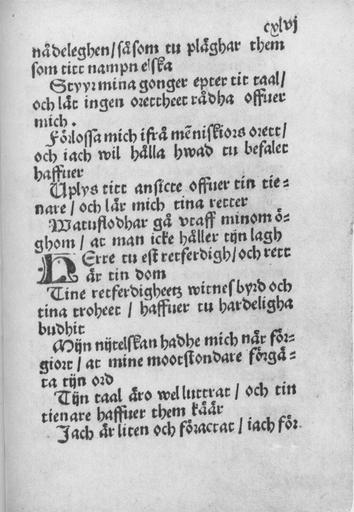 cxlvj
nådeleghen/såsom tu pläghar them
som titt nampn elska
Styyr mina gonger epter tit taal/
och låt ingen orettheet rådha offuer
mich.
Förlossa mich ifrå mēniskiors orett/
och iach wil hålla hwad tu befalet
haffuer
Uplys titt ansicte offuer tin tie=
nare/och lär mich tina retter
Watuflodhar gå vtaff minom ö=
ghom/at man icke håller tijn lagh
HErre tu est retferdigh/och rett
är tin dom
Tine retferdigheetz witnesbyrd och
tina troheet/haffuer tu hardeligha
budhit
Mijn nijtelskan hadhe mich när för=
giort/at mine mootstondare förgä=
ta tijn ord
Tijn taal äro wel luttrat/och tin
tienare haffuer them käär
Jach är liten och föractat/iach för